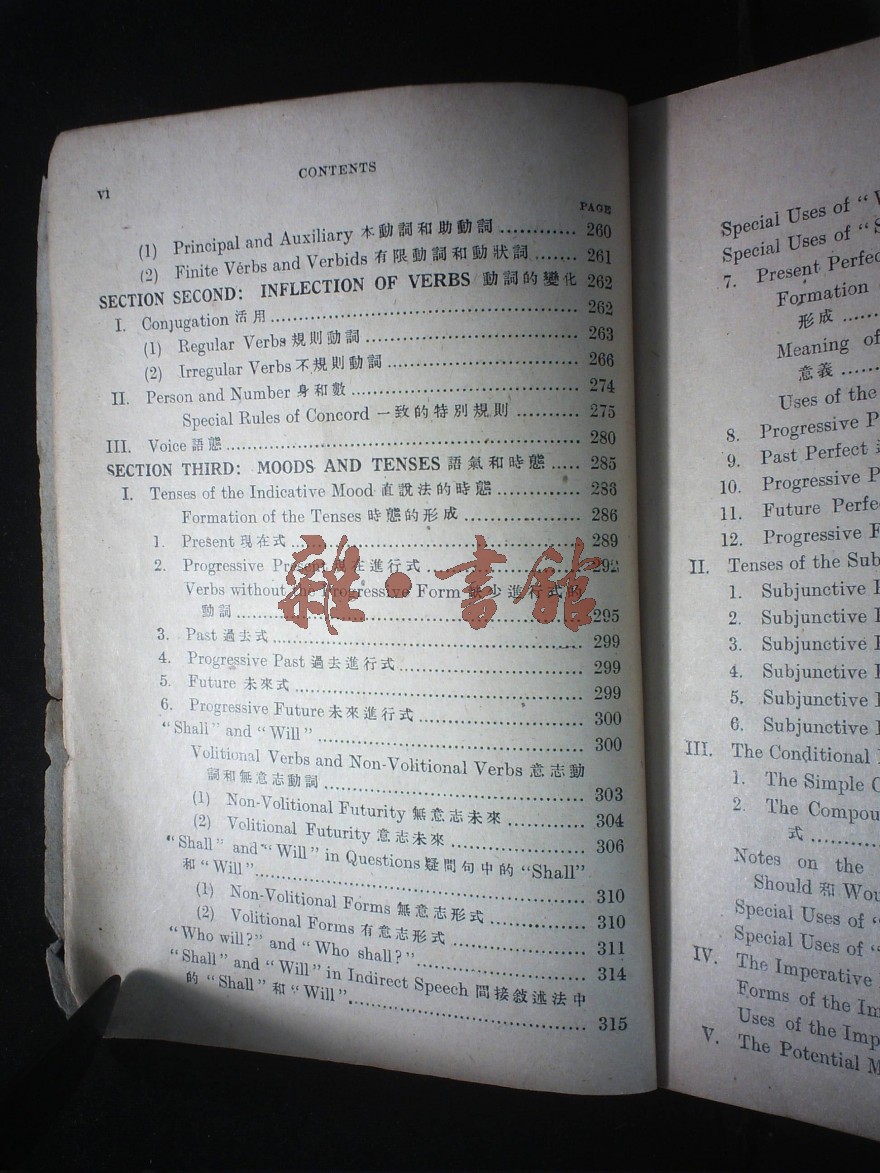 VI
CONTENTS
PAGE
(1) Principal and Auxiliary 本動詞和助動詞 ............ 260
(2) Finite Verbs and Verbids 有限動詞和動狀詞 ....... 261
SECTION SECOND: INFLECTION OF VERBS 動詞的變化 262
I. Conjugation 活用 ............ 262
(1) Regular Verbs 規則動詞 ............ 263
(2) Irregular Verbs 不規則動詞 ............ 266
II. Person and Number 身和數 ............ 274
Special Rules of Concord 一致的特別規則 .......... 275
III. Voice 語態 ............ 280
SECTION THIRD: MOODS AND TENSES 語氣和時態 ..... 285
I. Tenses of the Indicative Mood 直說法的時態 ............ 286
Formation of the Tenses 時態的形成 ............ 286
1. Present 現在式 ............ 289
2. Progressive Present 現在進行式 ............ 292
Verbs without the Progressive Form 缺少進行式的
動詞 ............ 295
3. Past 過去式 ............ 299
4. Progressive Past 過去進行式 ............ 299
5. Future 未來式 ............ 299
6. Progressive Future 未來進行式 ............ 300
"Shall" and "Will" ............ 300
Volitional Verbs and Non-Volitional Verbs 意志動
詞和無意志動詞 ............ 303
(1) Non-Volitional Futurity 無意志未來 ............ 304
(2) Volitional Futurity 意志未來 ............ 306
"Shall" and "Will" in Questions 疑問句中的 "Shall"
和 "Will" ............ 310
(1) Non-Volitional Forms 無意志形式 ............ 310
(2) Volitional Forms 有意志形式 ............ 311
"Who will?" and "Who shall?" ............ 314
"Shall" and "Will" in Indirect Speech 間接敘述法中
的 "Shall" 和 "Will" ............ 315
雜·書館
Special Uses of "
Special Uses of "
7. Present Perfec
Formation
形成 .....
Meaning of
意義 .....
Uses of the
8. Progressive P
9. Past Perfect
10. Progressive P
11. Future Perfe
12. Progressive F
II. Tenses of the Sub
1. Subjunctive
2. Subjunctive
3. Subjunctive
4. Subjunctive
5. Subjunctive
6. Subjunctive
III. The Conditional
1. The Simple C
2. The Compou
式 ............
Notes on the
Should 和 Wou
Special Uses of "
Special Uses of "
IV. The Imperative
Forms of the Im
Uses of the Imp
V. The Potential M